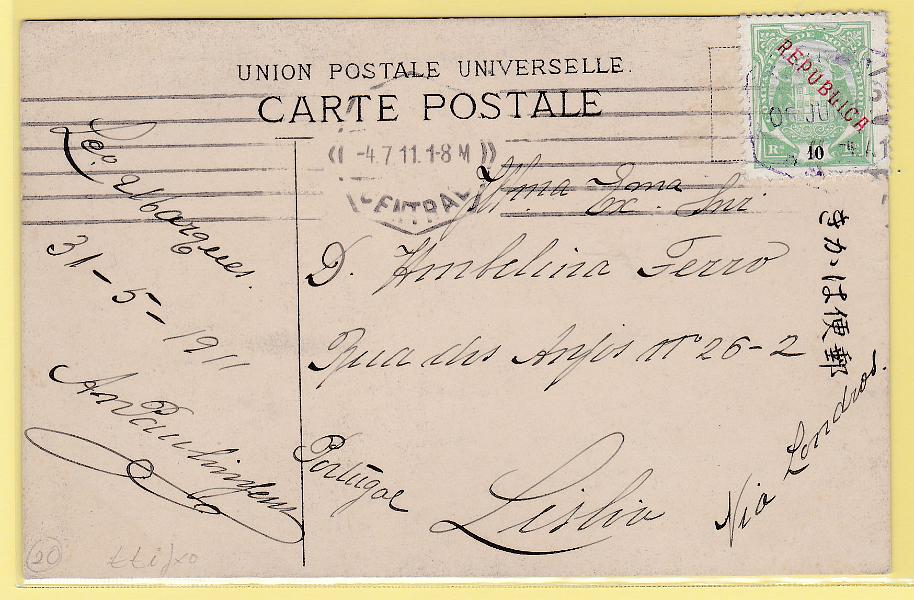 UNION POSTALE UNIVERSELLE.
CARTE POSTALE
REPUBLICA
10
-4.7.11.1-8 M
CENTRAL
Lço Marques.
31-5-1911
Illma Exma Snr.
D. Umbelina Ferro
Rua dos Anjos nº 26-2
Lisboa
Portugal
Via Londres.
きかは便郵
20